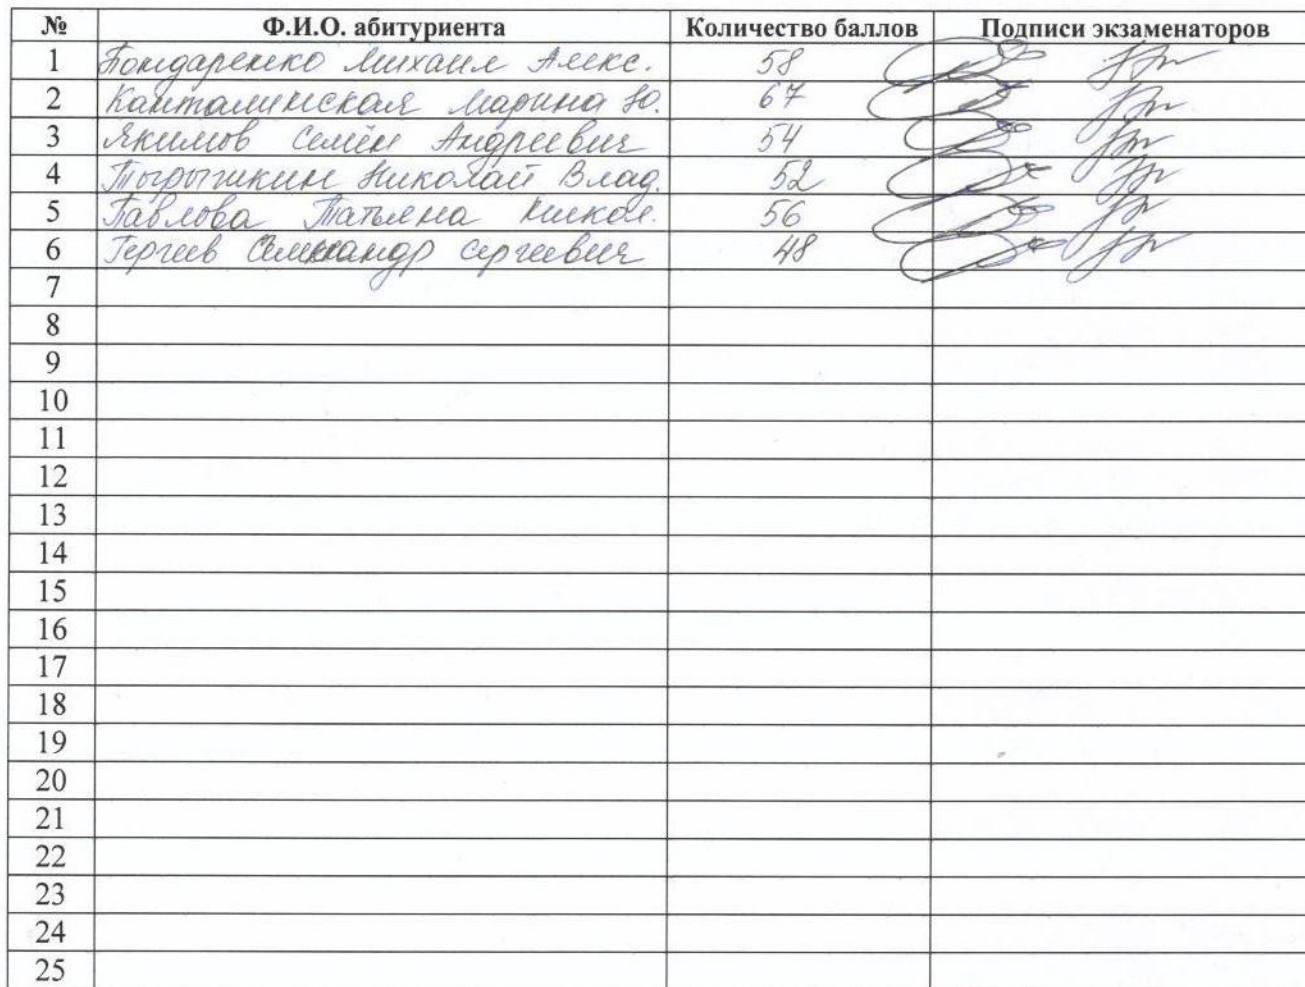 № Ф.И.О. абитуриента Количество баллов Подписи экзаменаторов
1 Бондаренко Михаил Алекс. 58
2 Марина Ю. 67
3 Якимов Семён Андреевич 54
4 Тырышкин Николай Влад. 52
5 Павлова Татьяна Никол. 56
6 Сергеевич 48
7
8
9
10
11
12
13
14
15
16
17
18
19
20
21
22
23
24
25